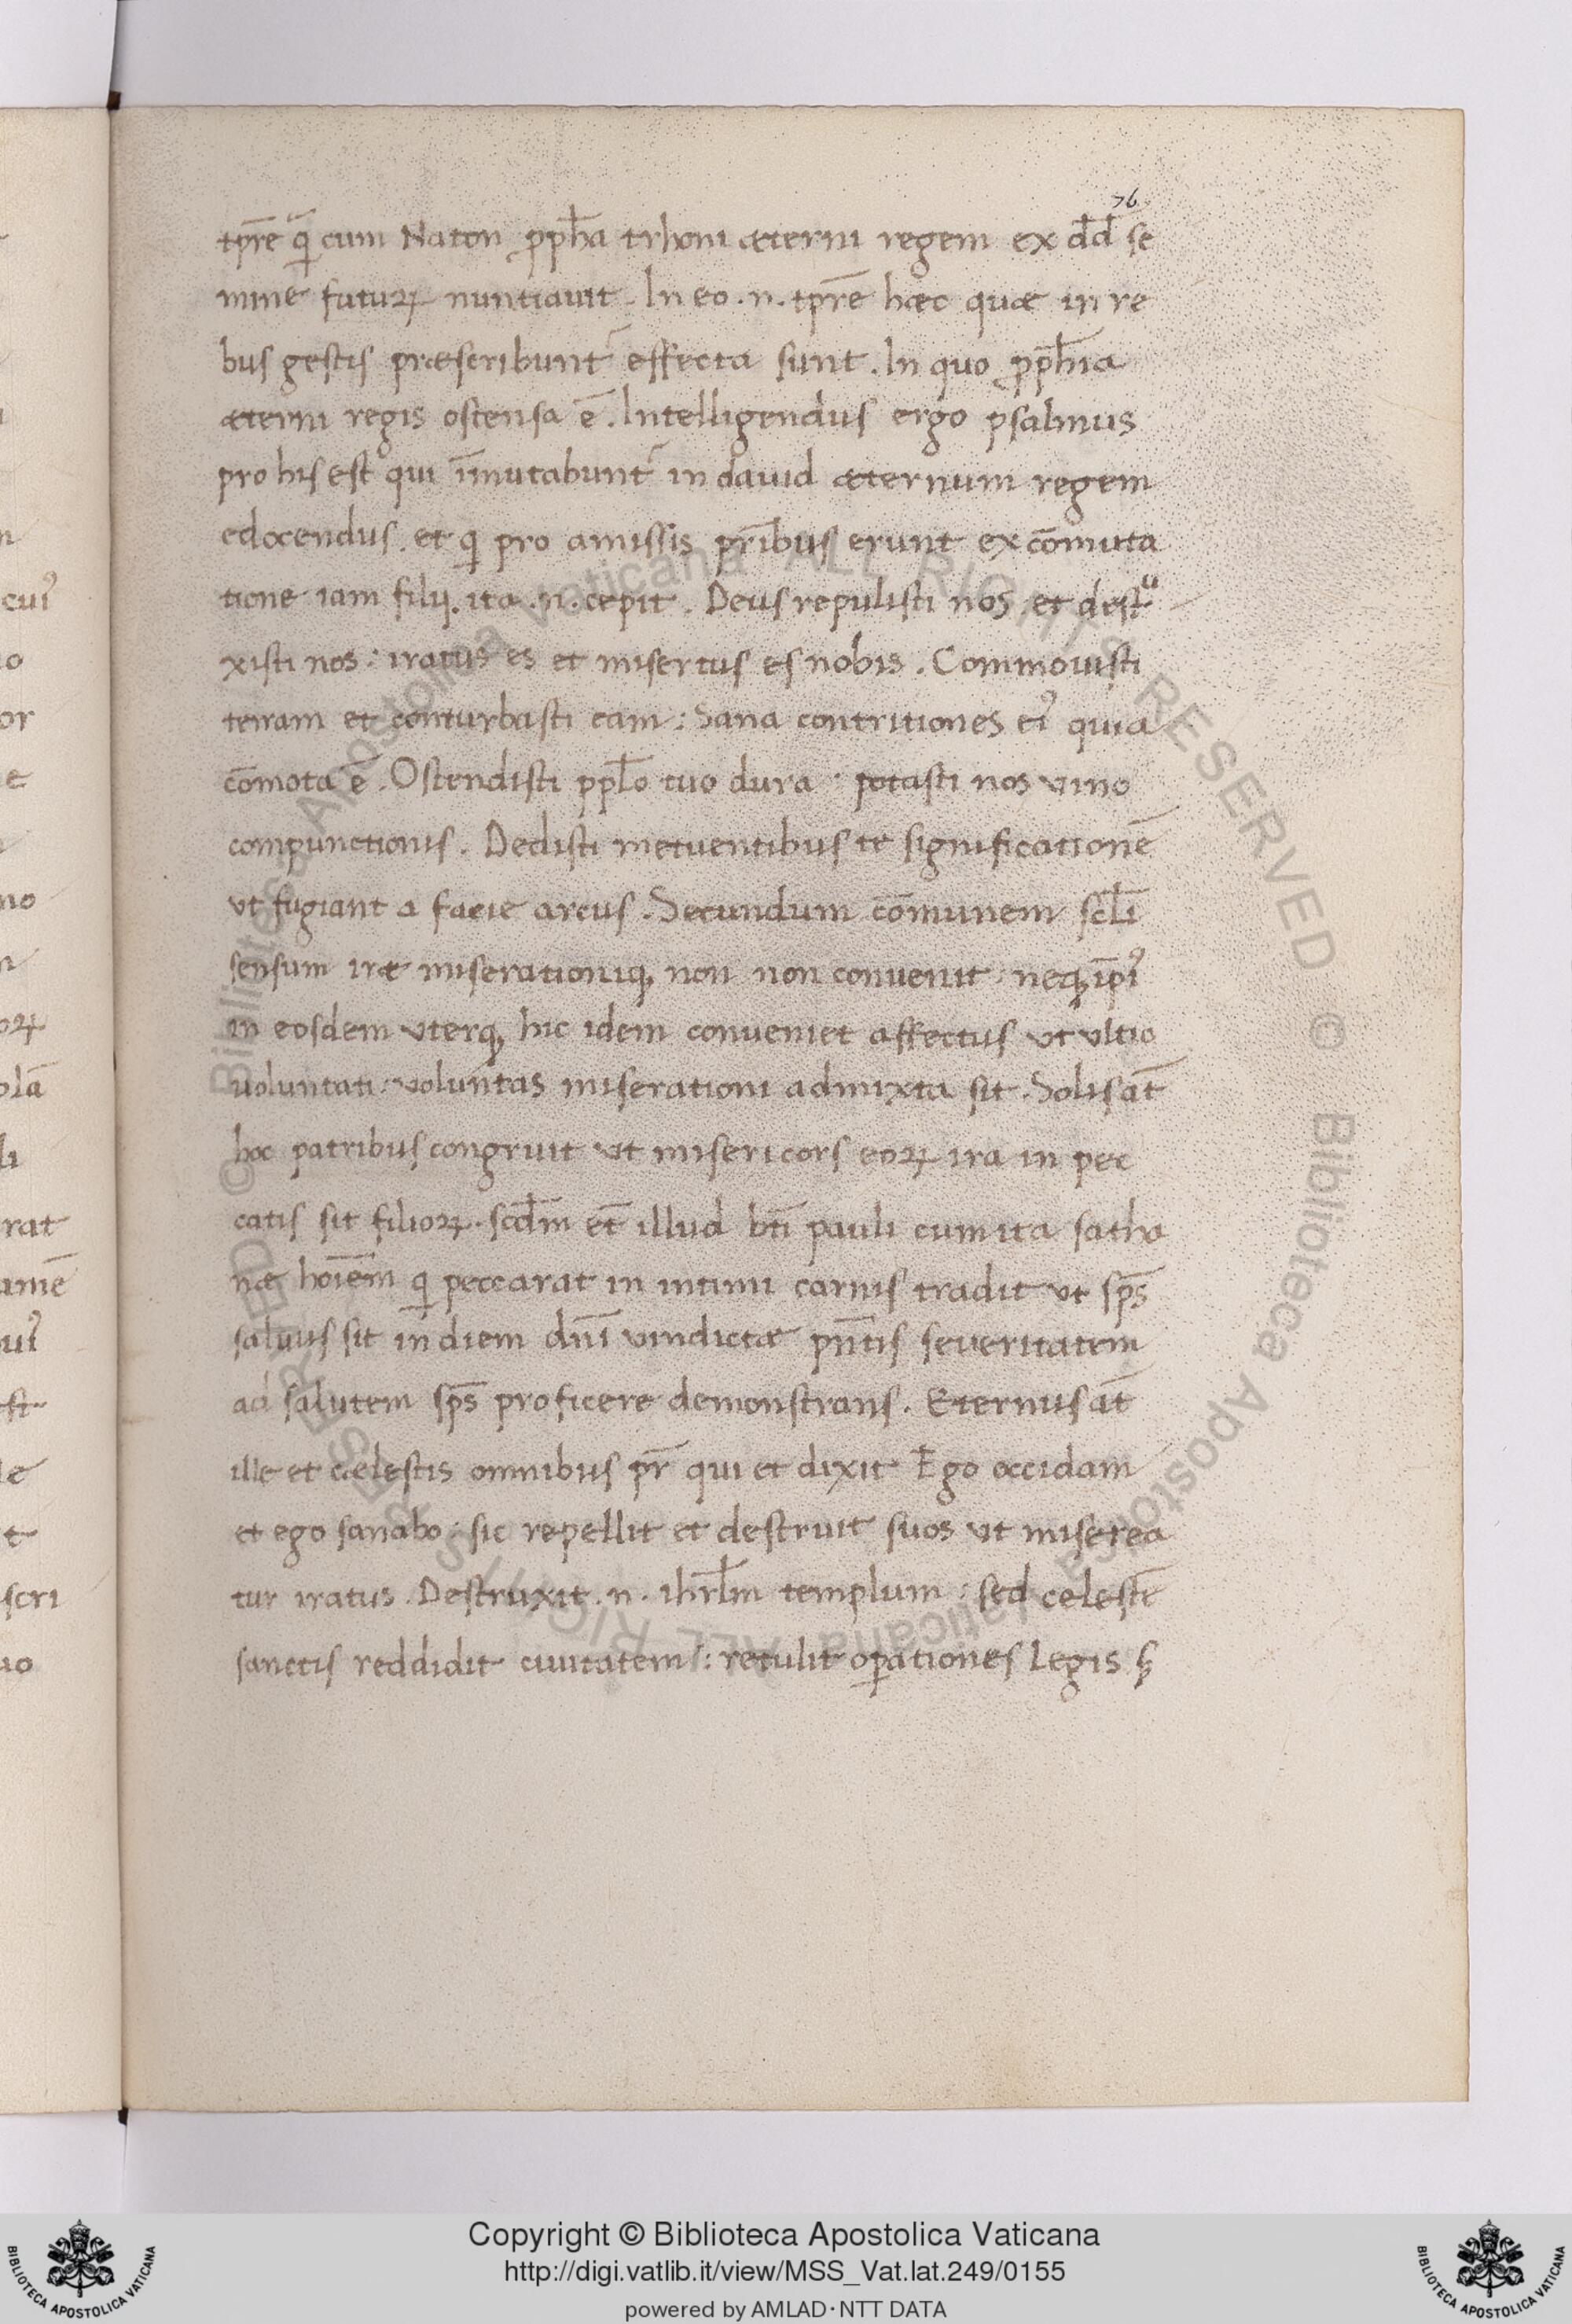 76
tp̄re q̄ cum Naton ꝓph̄a trhoni æterni regem ex d̄d̄ se
mine futuꝝ nuntiauit. In eo .n. tp̄re hæc quæ in re
bus gestis præscribunt᷑ effecta sunt. In quo ꝓph̄ia
æterni regis ostensa ē. Intelligendus ergo psalmus
pro his est qui īmutabunt᷑ in dauid æternum regem
edocendus. et q pro amissis pr̄ibus erunt ex cōmuta
tione iam filij. ita .n. cepit. Deus repulisti nos et destͧ
xisti nos: iratus es et misertus es nobis. Commouisti
terram et conturbasti eam: Sana contritiones eiꝰ quia
cōmota ē. Ostendisti ppl̄o tuo dura: potasti nos vino
compunctionis. Dedisti metuentibus te significationē
vt fugiant a facie arcus. Secundum cōmunem scl̄i
sensum iræ miserationiqꝫ non non convenit: neqꝫ īpiꝰ
in eosdem vterqꝫ hic idem conveniet affectus vt vltio
uoluntati: voluntas miserationi admixta sit. Solis at̄
hoc patribus congruit vt misericors eoꝝ ira in pec
catis sit filioꝝ. scd̄m et̄ illud bt̄i pauli cum ita satha
næ hoīem q peccarat in intimi carnis tradit vt sp̄s
saluus sit in diem dn̄i vindictæ pn̄tis severitatem
ad salutem sp̄s proficere demonstrans. Eternus at̄
ille et cælestis omnibus pr̄ qui et dixit Ego occidam
et ego sanabo: sic repellit et destruit suos vt miserea
tur iratus. Destruxit .n. ihrl̄m templum: sed celestē
sanctis reddidit ciuitatem: retulit oꝑationes legis ꝭ
cuiꝰ
io
or
e
no
oꝝ
olā
li
rat
amē
uiꝰ
st
le
t
scri
uo
© Biblioteca Apostolica Vaticana ALL RIGHTS RESERVED © Biblioteca Apostolica Vaticana ALL RIGHTS RESERVED
BIBLIOTECA APOSTOLICA VATICANA
Copyright © Biblioteca Apostolica Vaticana
http://digi.vatlib.it/view/MSS_Vat.lat.249/0155
powered by AMLAD·NTT DATA
BIBLIOTECA APOSTOLICA VATICANA